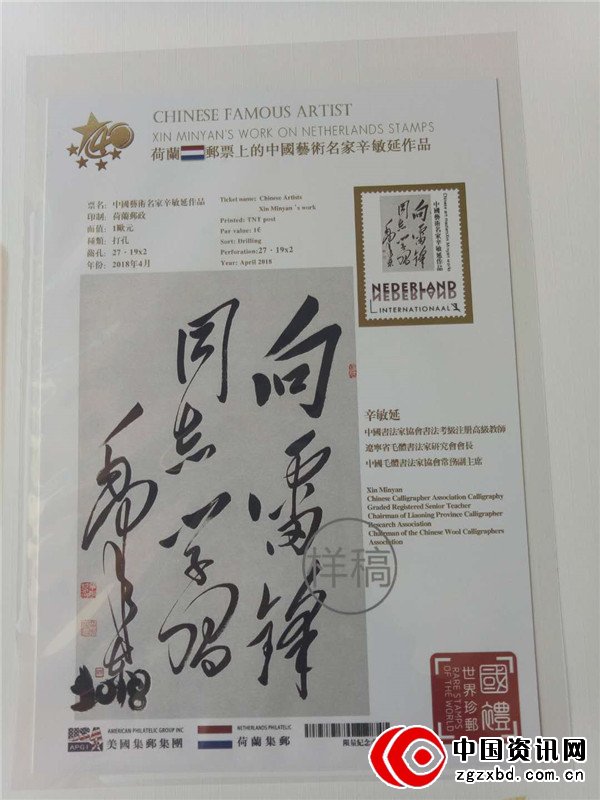 140
CHINESE FAMOUS ARTIST
XIN MINYAN'S WORK ON NETHERLANDS STAMPS
荷蘭郵票上的中國藝術名家辛敏延作品
票名：中國藝術名家辛敏延作品
印制：荷蘭郵政
面值：1歐元
種類：打孔
齒孔：27·19x2
年份：2018年4月
Ticket name: Chinese Artists
Xin Minyan 's work
Printed: TNT post
Par value: 1€
Sort: Drilling
Perforation:27·19x2
Year: April 2018
向雷鋒
同志學習
中國藝術名家辛敏延作品
NEDERLAND
INTERNATIONAAL
向雷鋒
同志學習
2018
样稿
辛敏延
中國書法家協會書法考級注册高級教師
遼寧省毛體書法家研究會會長
中國毛體書法家協會常務副主席
Xin Minyan
Chinese Calligrapher Association Calligraphy
Graded Registered Senior Teacher
Chairman of Liaoning Province Calligrapher
Research Association
Chairman of the Chinese Wool Calligraphers
Association
國禮
世界珍郵
RARE STAMPS
OF THE WORLD
APGI
AMERICAN PHILATELIC GROUP INC
美國集郵集團
NETHERLANDS PHILATELIC
荷蘭集郵
限量紀念
中国资讯网
zgzxbd.com.cn